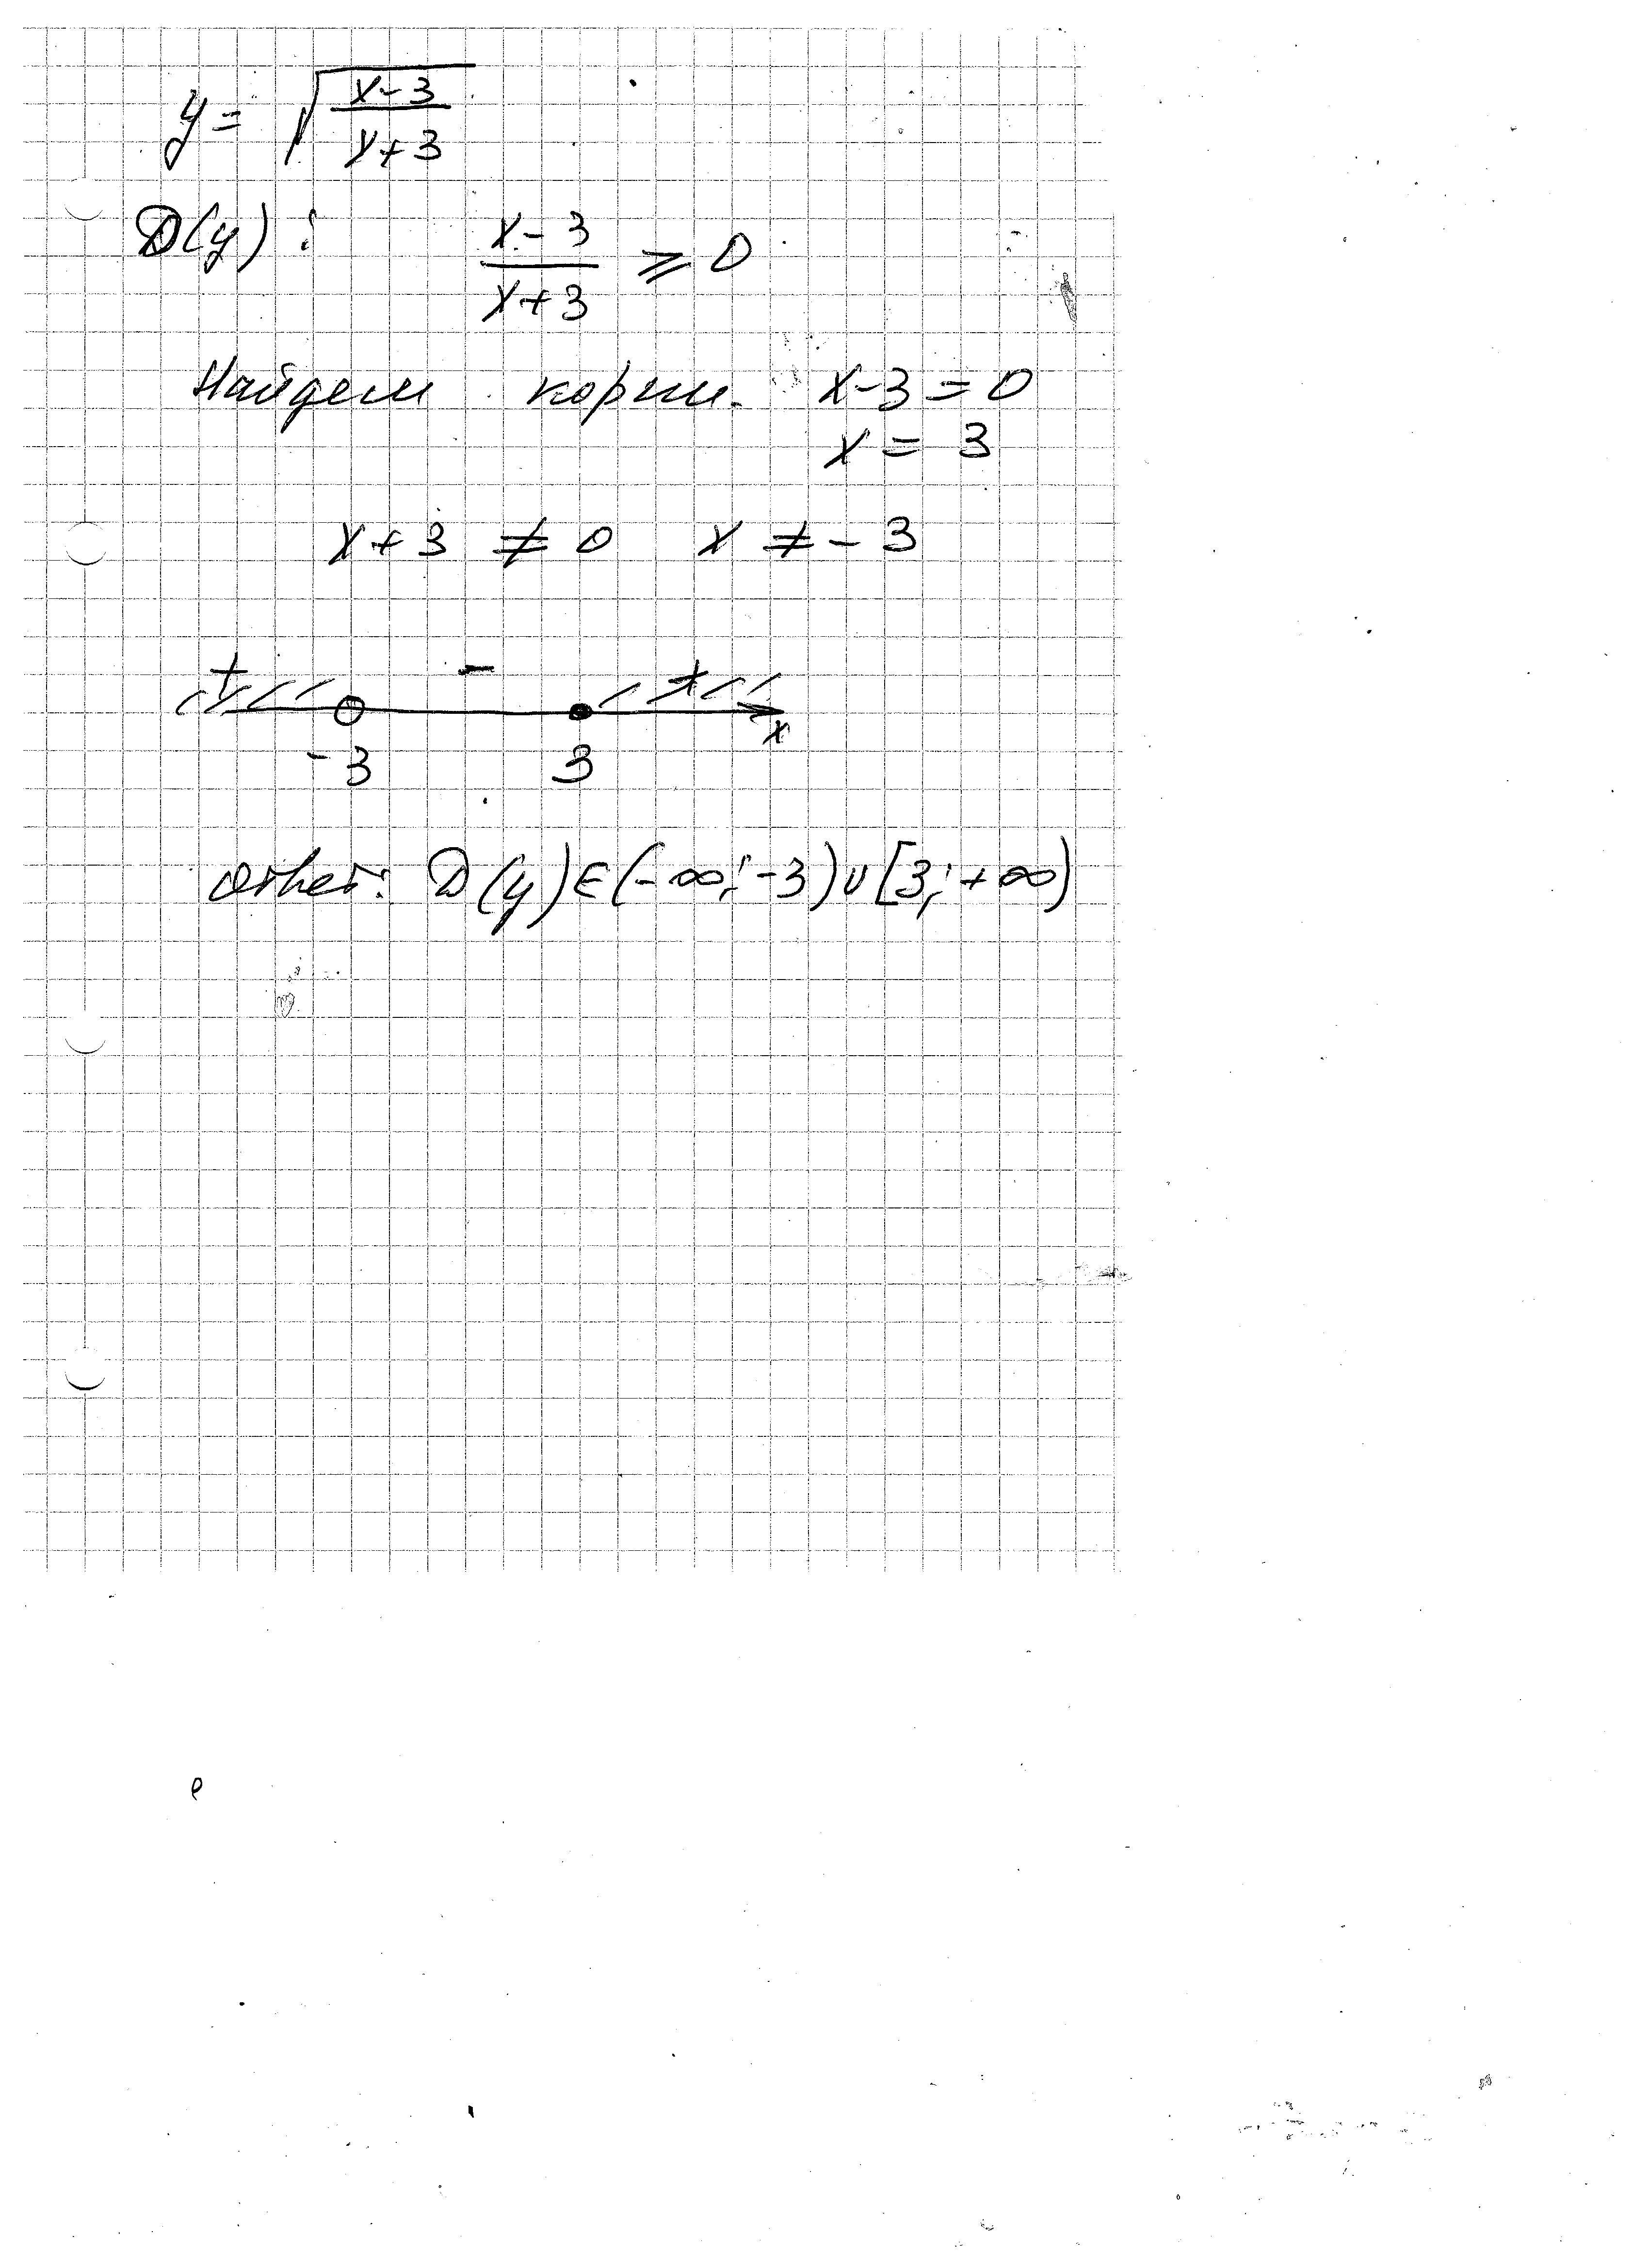 y = √((x-3)/(x+3))
D(y): (x-3)/(x+3) ⩾ 0
Найдем корни. x-3=0
x = 3
x+3 ≠ 0 x ≠ -3
+ - +
x
-3 3
Ответ: D(y)∈(-∞;-3)∪[3;+∞)